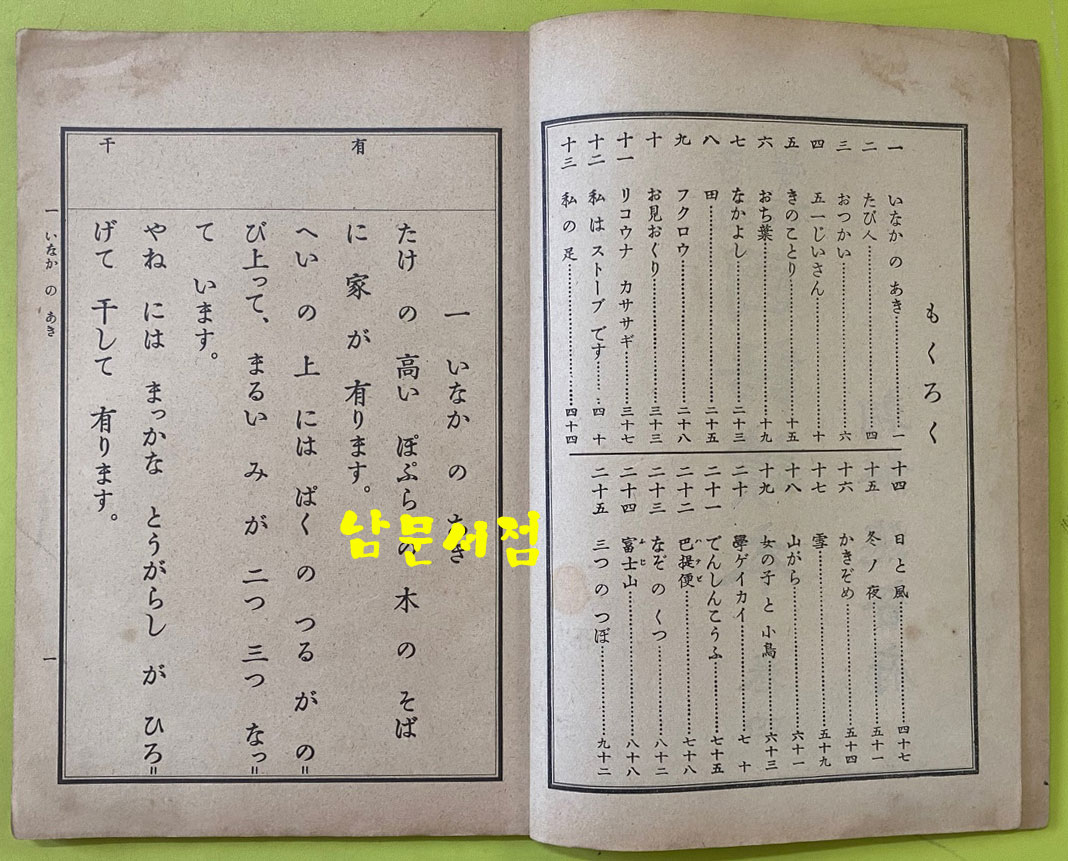 もくろく
一 いなか の あき……一
二 たび人……四
三 おつかい……六
四 五一じいさん……十
五 きのことり……十五
六 おち葉……十九
七 なかよし……二十三
八 田……二十五
九 フクロウ……二十八
十 お見おくり……三十三
十一 リコウナ カササギ……三十七
十二 私 は ストーブ です……四十
十三 私 の 足……四十四
十四 日 と 風……四十七
十五 冬 ノ 夜……五十一
十六 かきぞめ……五十四
十七 雪……五十九
十八 山がら……六十一
十九 女の子 と 小鳥……六十三
二十 學ゲイカイ……七十
二十一 でんしんこうふ……七十五
二十二 巴提便……七十八
ハテビ
二十三 なぞ の くつ……八十二
二十四 富士山……八十八
フジ
二十五 三つ の つぼ……九十二
有
干
一 いなか の あき
たけ の 高い ぽぷら の 木 の そば
に 家 が 有ります。
へい の 上 には ぱく の つる が の=
び上って、まるい み が 二つ 三つ なっ=
て います。
やね には まっかな とうがらし が ひろ=
げて 干して 有ります。
一 いなか の あき
一
남문서점